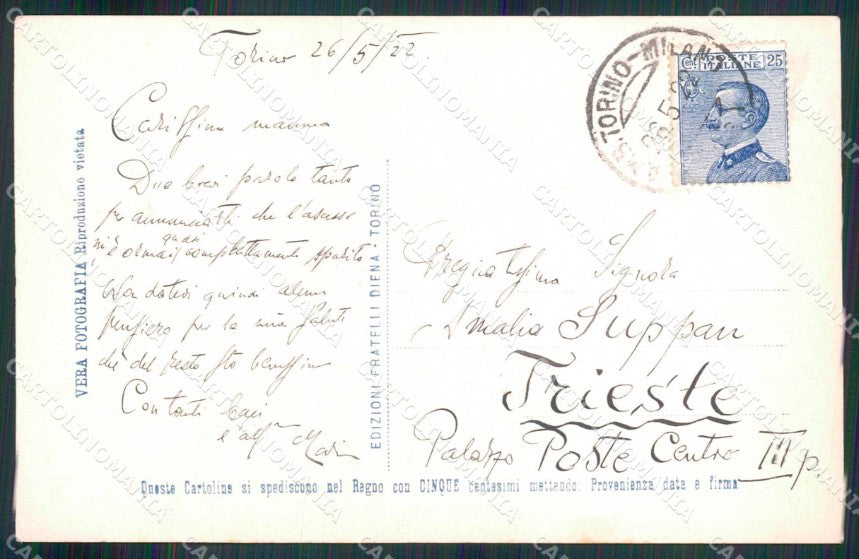 Torino 26/5/22
Carissima mamma
Due brevi parole tanto
per annunciarti che l'ascesso
mi è ormai quasi completamente sparito
Non datevi quindi alcun
pensiero per la mia salute
che del resto sto benissimo
Con tanti baci
e aff.
VERA FOTOGRAFIA Riproduzione vietata
EDIZIONI FRATELLI DIENA TORINO
TORINO-MILANO
26.5.22
Ct. POSTE 25
ITALIANE
Pregiatissima Signora
Amalia Suppan
Trieste
Palazzo Poste Centro III p.
Queste Cartoline si spediscono nel Regno con CINQUE centesimi mettendo: Provenienza data e firma
CARTOLINOMANIA